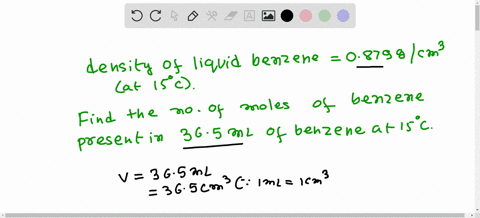 density of liquid benzene = 0.879g/cm³
(at 15°C).
Find the no. of moles of benzene
present in 36.5 mL of benzene at 15°C.
V = 36.5 mL
= 36.5 cm³ (∵ 1mL = 1cm³